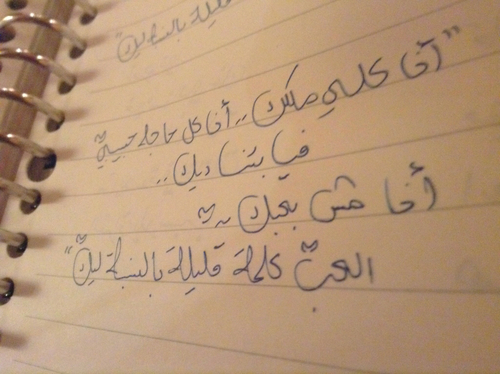 قليلة بالنسبة ليك"
"أنا كلي ملكك .. أنا كل حاجة حبيبي
فيا بتناديك ..
أنا مش بحبك ..
الحب كلمة قليلة بالنسبة ليك"